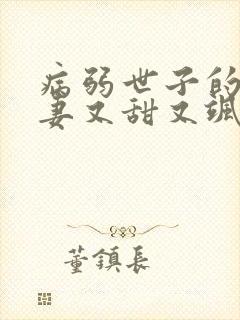 病弱世子的
妻又甜又飒
董镇长